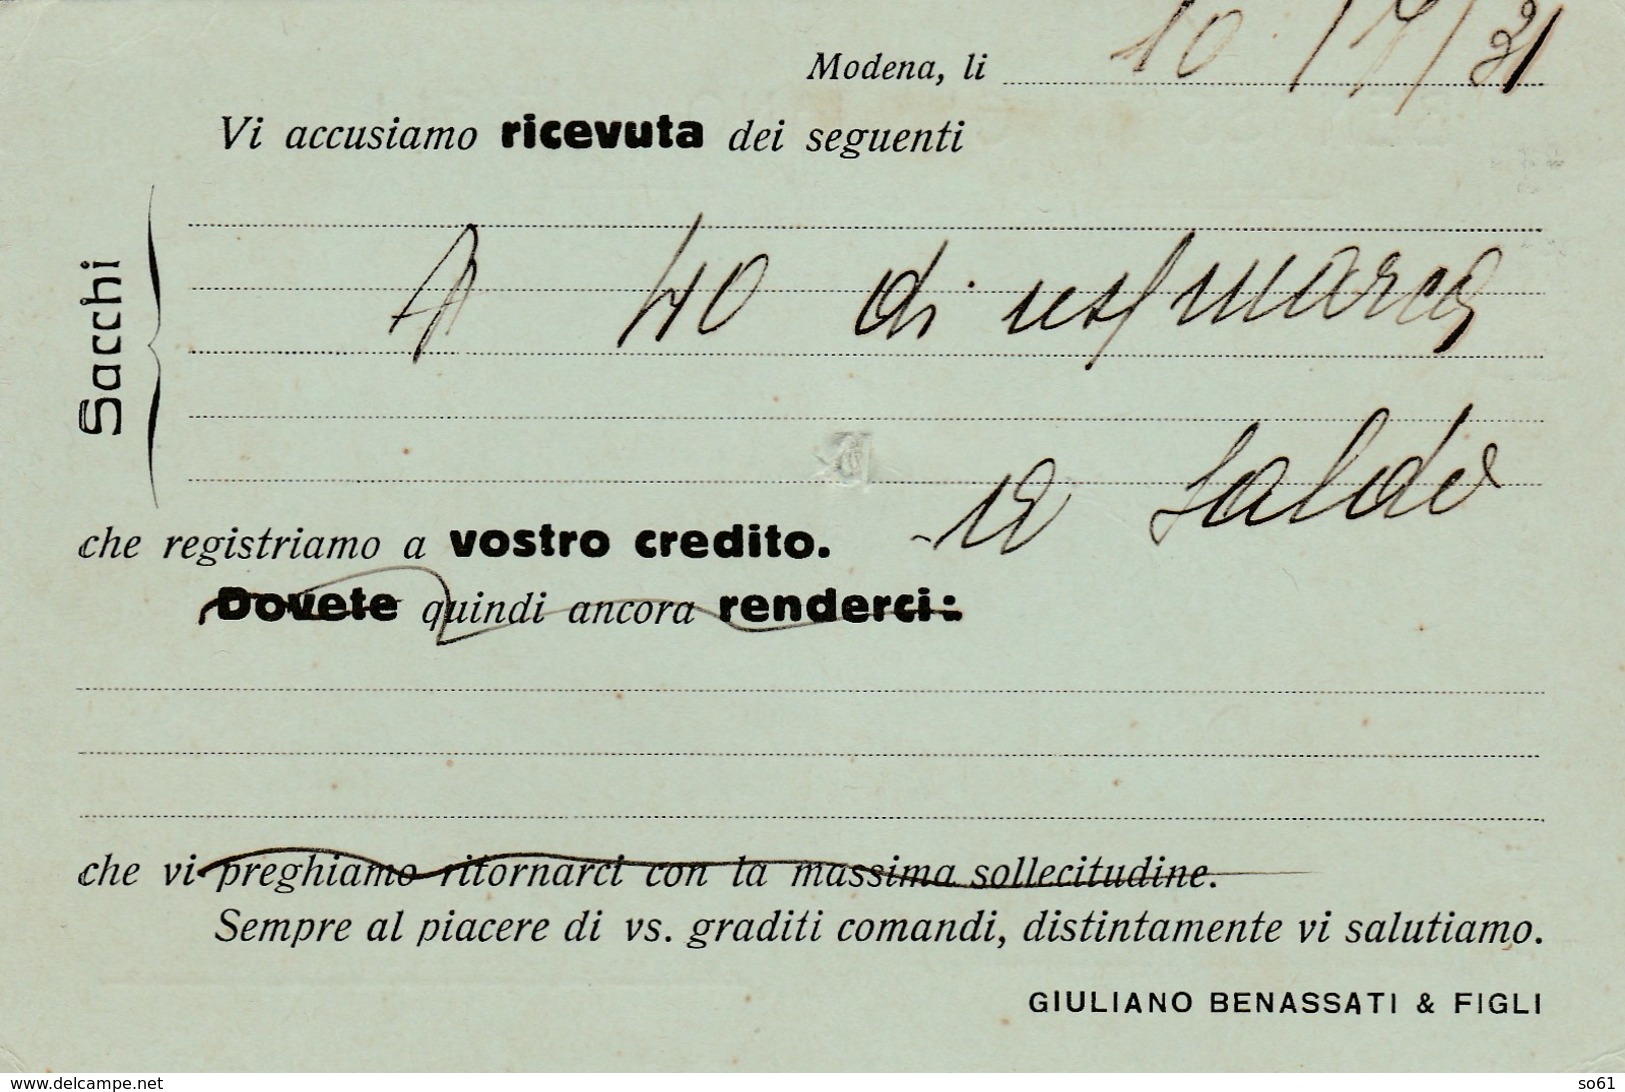 Modena, li 10/7/31
Vi accusiamo ricevuta dei seguenti
Sacchi
40 di marca
a Saldo
che registriamo a vostro credito.
Dovete quindi ancora renderci:
che vi preghiamo ritornarci con la massima sollecitudine.
Sempre al piacere di vs. graditi comandi, distintamente vi salutiamo.
GIULIANO BENASSATI & FIGLI
www.delcampe.net
so61